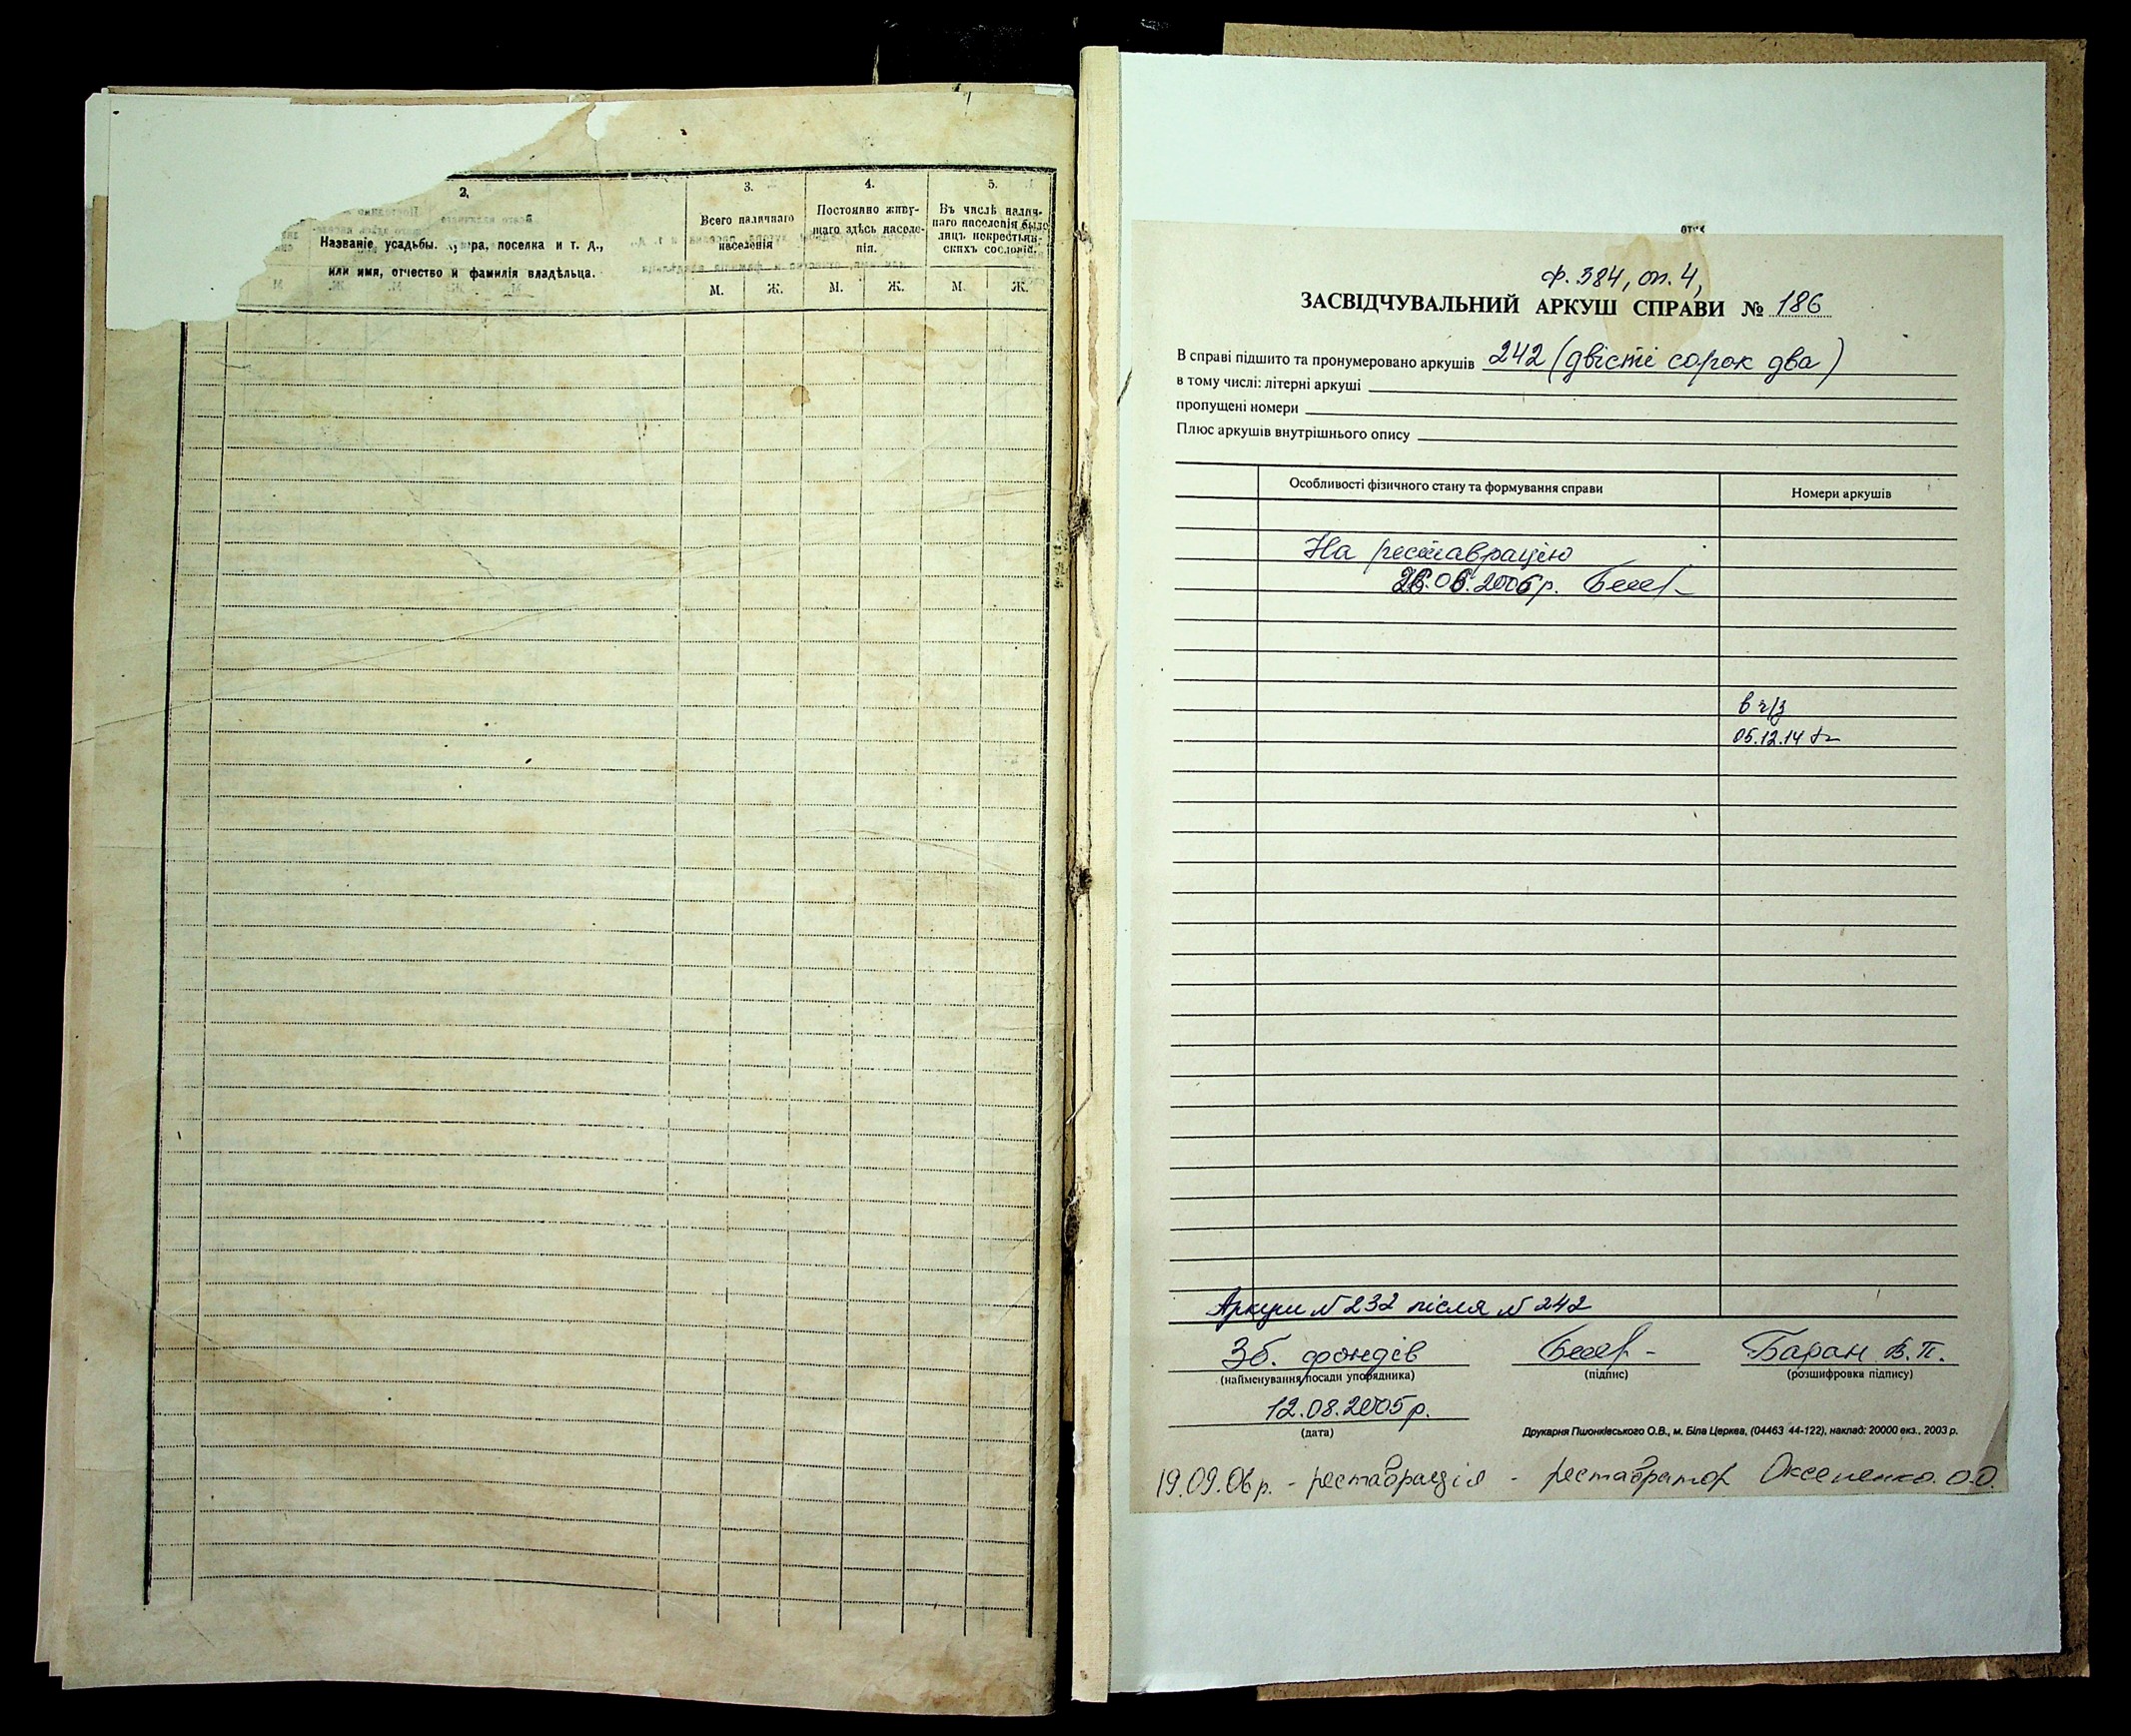 2.
Названіе усадьбы, ра, поселка и т. д.,
или имя, отчество и фамилія владѣльца.
3.
Всего наличнаго
населенія
М. Ж.
4.
Постоянно живу-
щаго здѣсь населе-
нія.
М. Ж.
5.
Въ числѣ налич-
наго населенія было
лицъ некрестьян-
скихъ сословій.
М. Ж.
Ф. 384, оп. 4,
ЗАСВІДЧУВАЛЬНИЙ АРКУШ СПРАВИ № 186
В справі підшито та пронумеровано аркушів 242 (двісті сорок два)
в тому числі: літерні аркуші
пропущені номери
Плюс аркушів внутрішнього опису
Особливості фізичного стану та формування справи Номери аркушів
На реставрацію
26.06.2006р.
в ч/з
05.12.14
Аркуш № 232 після № 242
Зб. фондів Баран В.П.
(найменування посади упорядника) (підпис) (розшифровка підпису)
12.08.2005р.
(дата)
Друкарня Пшонківського О.В., м. Біла Церква, (04463 44-122), наклад: 20000 екз., 2003 р.
19.09.06р. - реставрація - реставратор Оксененко О.О.